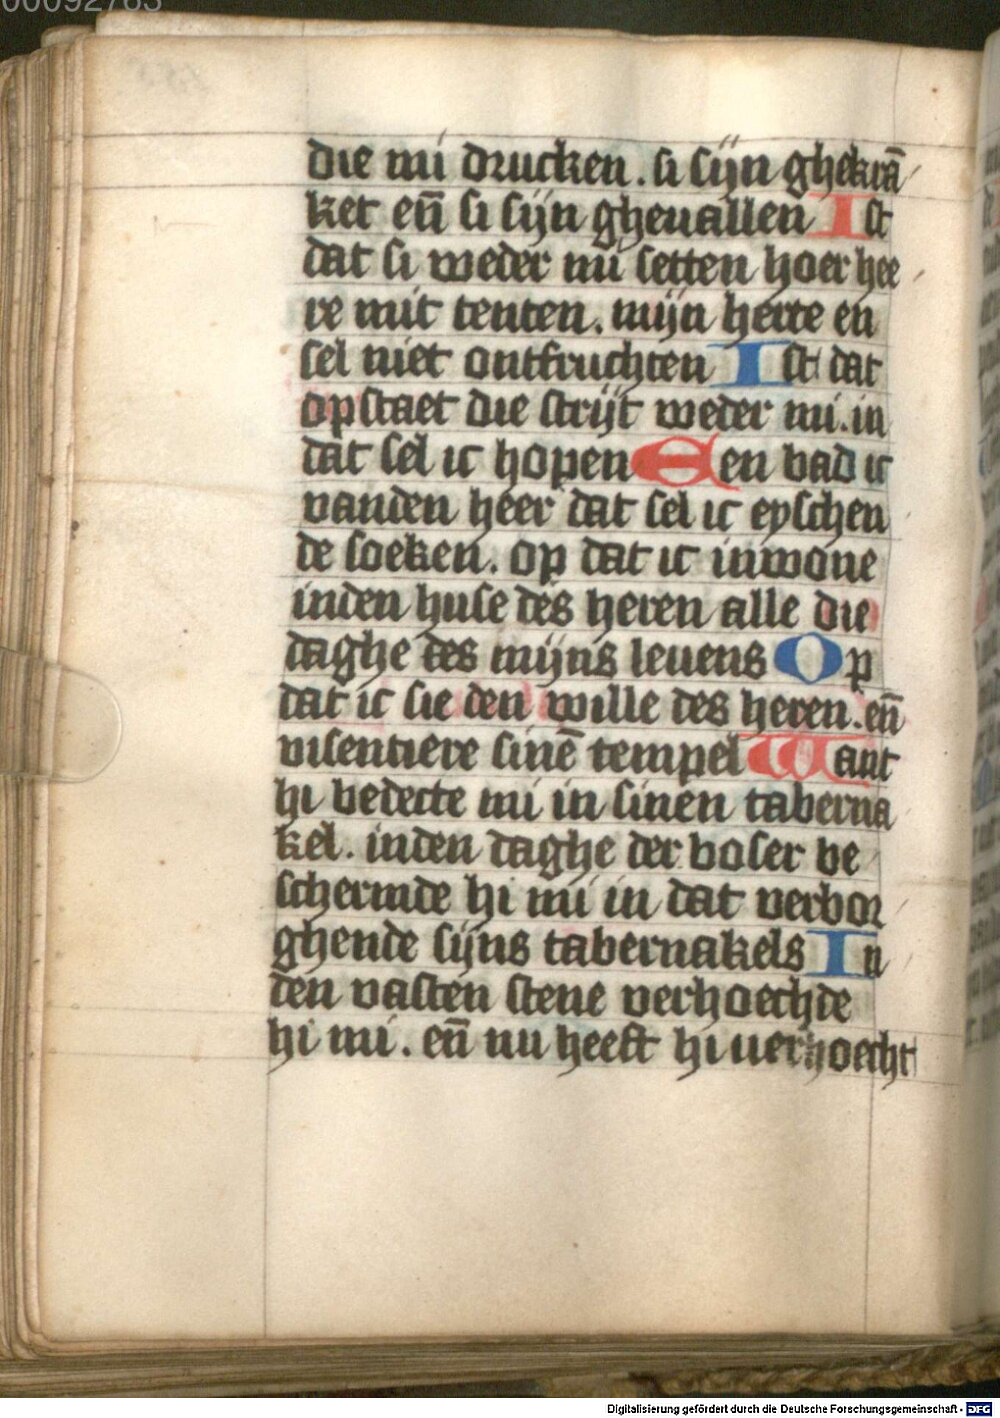 00092763
die mi drucken. si sijn ghekrā
ket en̄ si sijn gheuallen Ist
dat si weder mi setten hoer hee
re mit tenten. mijn herte en
sel niet ontfruchten Ist dat
opstaet die strijt weder mi. in
dat sel ic hopen Een bad ic
vanden heer dat sel ic eyschen
de soeken. op dat ic inwone
inden huse des heren alle die
daghe des mijns leuens Op
dat ic sie den wille des heren. en̄
visentiere sinē tempel Want
hi bedecte mi in sinen taberna
kel. inden daghe der boser be
schermde hi mi in dat verbor
ghende sijns tabernakels In
den vasten stene verhoechde
hi mi. en̄ nu heeft hi uerhoecht
Digitalisierung gefördert durch die Deutsche Forschungsgemeinschaft - DFG